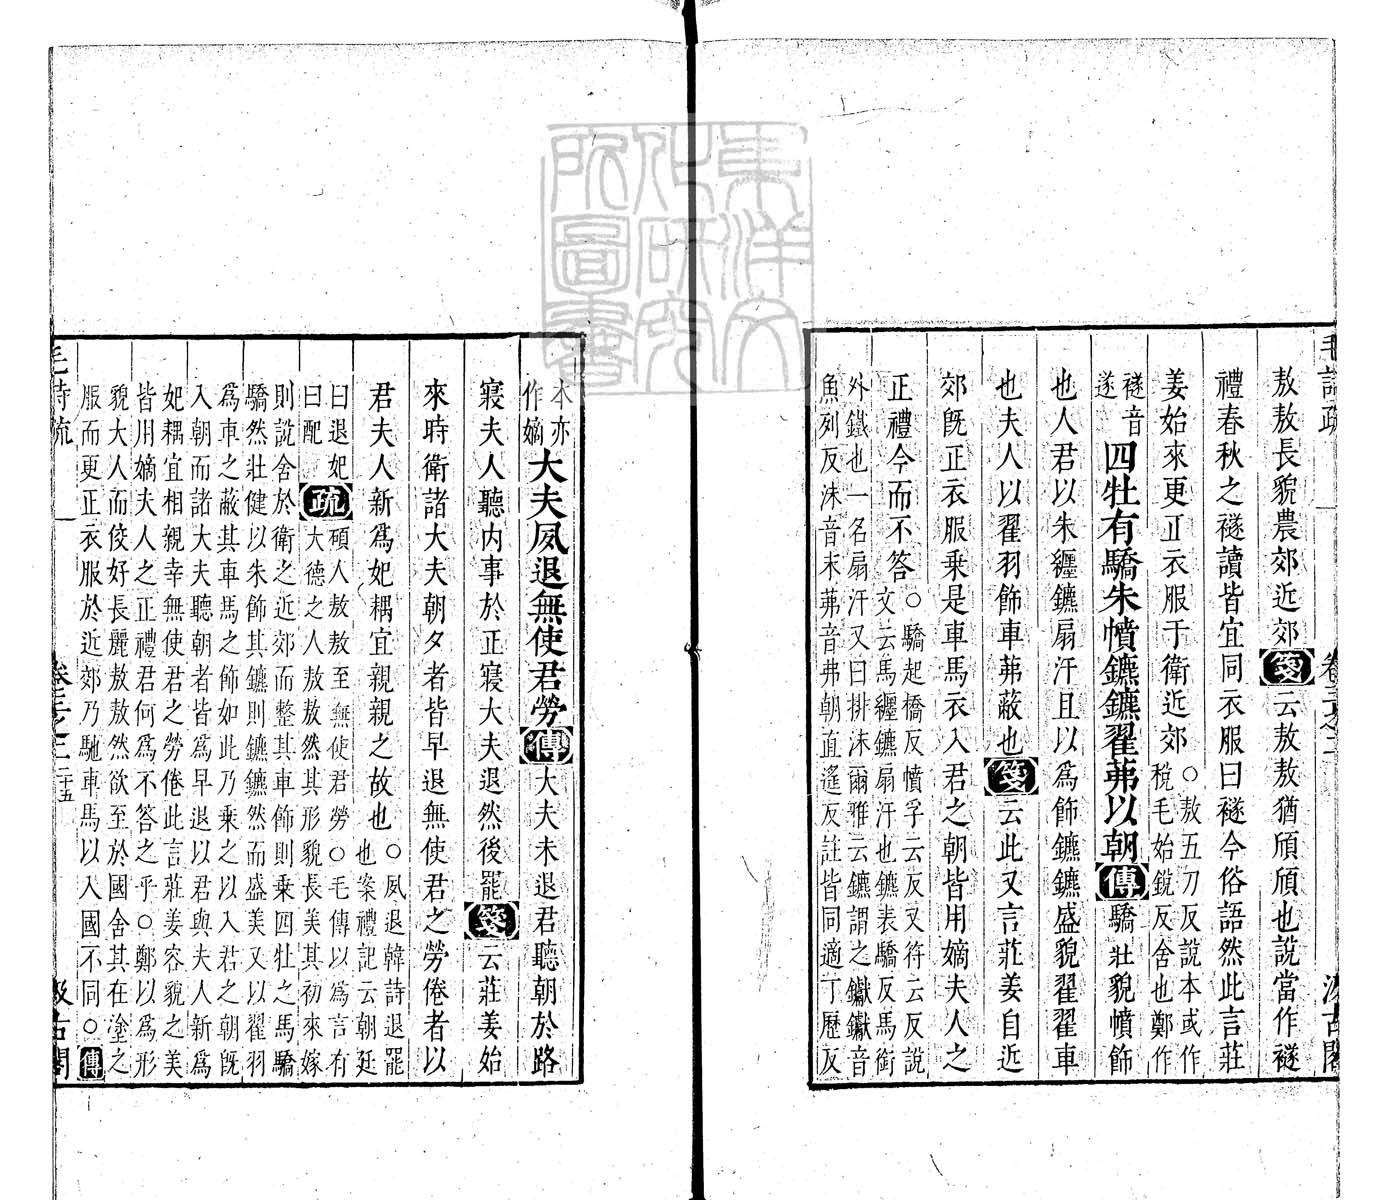 毛詩疏 卷三之二 汲古閣
敖敖長貌農郊近郊箋云敖敖猶頎頎也說當作襚
禮春秋之襚讀皆宜同衣服曰襚今俗語然此言莊
姜始來更正衣服于衛近郊○敖五刀反說本或作
稅毛始銳反舍也鄭作
襚音
遂四牡有驕朱幩鑣鑣翟茀以朝傳驕壯貌幩飾
也人君以朱纏鑣扇汗且以爲飾鑣鑣盛貌翟翟車
也夫人以翟羽飾車茀蔽也箋云此又言莊姜自近
郊旣正衣服乘是車馬衣入君之朝皆用嫡夫人之
正禮今而不答○驕起橋反幩孚云反又符云反說
文云馬纏鑣扇汗也鑣表驕反馬銜
外鐵也一名扇汗又曰排沬爾雅云鑣謂之钀钀音
魚列反沬音末茀音弗朝直遙反註皆同適丁歷反
本亦
作嫡大夫夙退無使君勞傳大夫未退君聽朝於路
寢夫人聽內事於正寢大夫退然後罷箋云莊姜始
來時衛諸大夫朝夕者皆早退無使君之勞倦者以
君夫人新爲妃耦宜親親之故也○夙退韓詩退罷
也案禮記云朝廷
曰退妃
曰配疏碩人敖敖至無使君勞○毛傳以爲言有
大德之人敖敖然其形貌長美其初來嫁
則說舍於衛之近郊而整其車飾則乘四牡之馬驕
驕然壯健以朱飾其鑣則鑣鑣然而盛美又以翟羽
爲車之蔽其車馬之飾如此乃乘之以入君之朝旣
入朝而諸大夫聽朝者皆爲早退以君與夫人新爲
妃耦宜相親幸無使君之勞倦此言莊姜容貌之美
皆用嫡夫人之正禮君何爲不答之乎○鄭以爲形
貌大人而佼好長麗敖敖然欲至於國舍其在塗之
服而更正衣服於近郊乃馳車馬以入國不同○傳
毛詩疏 卷三之三 二十五 汲古閣
東洋文
化研究
所圖書